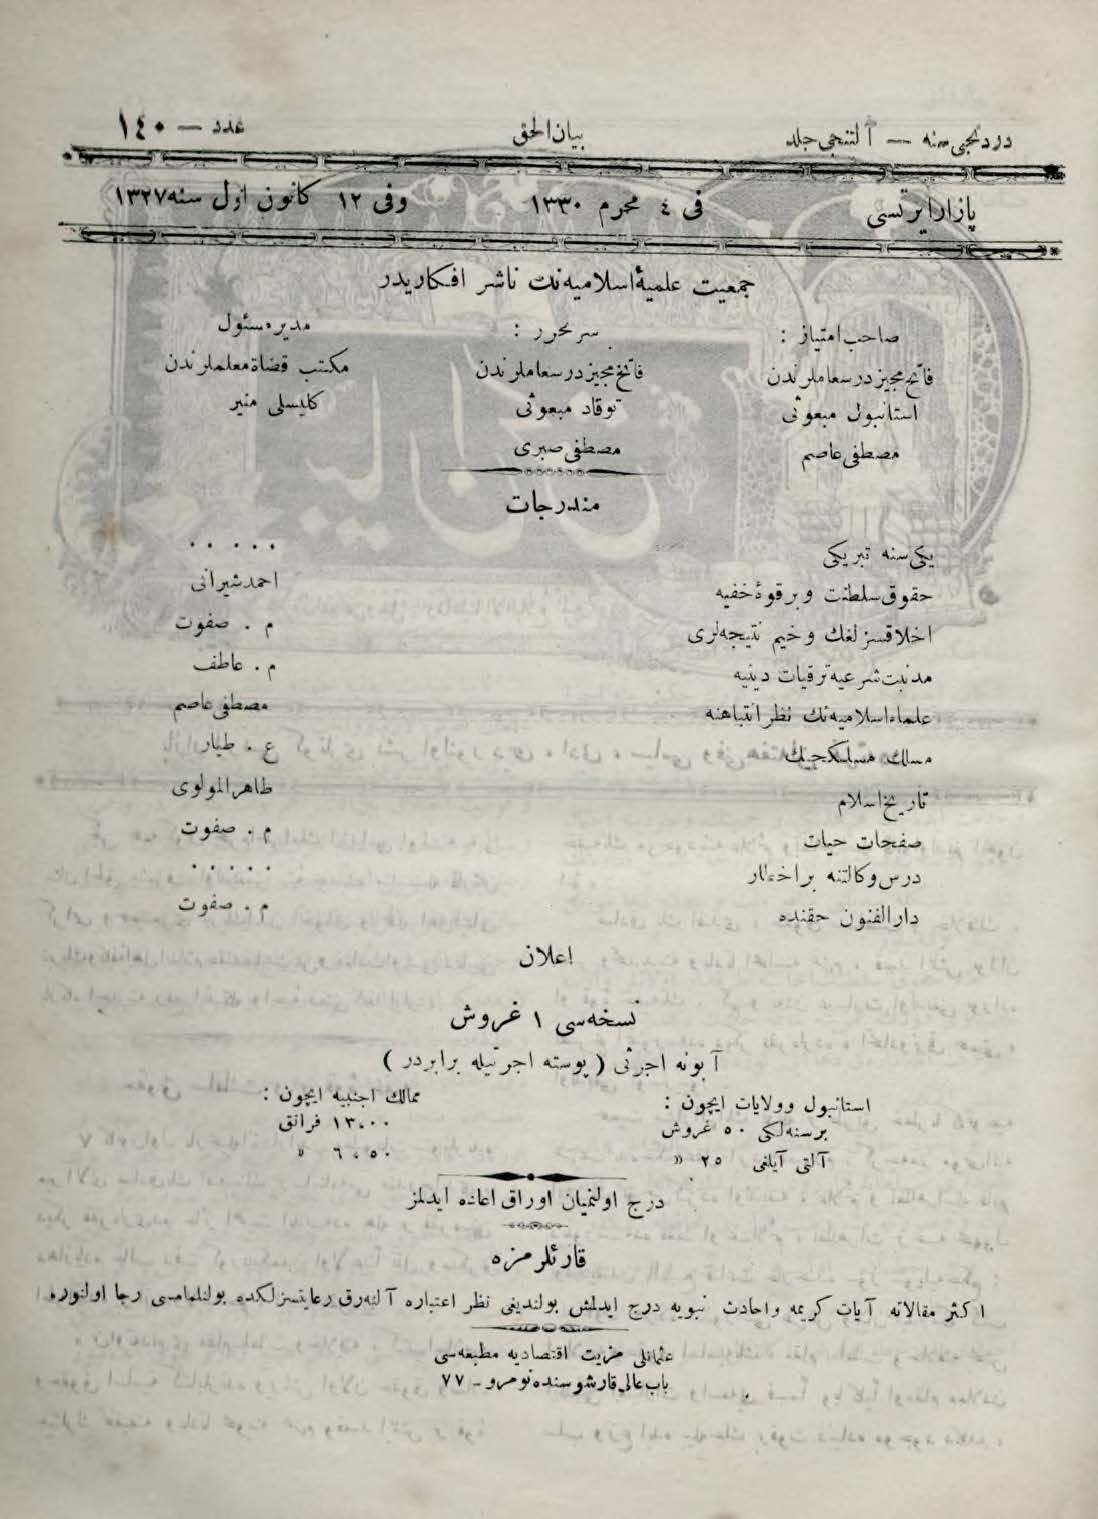 دردنجی سنه — آلتنجی جلد
بیان الحق
عدد — ١٤٠
پازارایرتسی
فی ٤ محرم ١٣٣٠
وفی ١٢ کانون اول سنه ١٣٢٧
جمعیت علمیهٔ اسلامیه نك ناشر افکاریدر
صاحب امتیاز :
فاتح مجیز درسعاملرندن
استانبول مبعوثی
مصطفی عاصم
سر محرر :
فاتح مجیز درسعاملرندن
توقاد مبعوثی
مصطفی صبری
مدیر مسئول
مکتب قضاة معلملرندن
کلیسلی منیر
مندرجات
یکی سنه تبریکی . . . . .
حقوق سلطنت و بر قوهٔ خفیه احمد شیرانی
اخلاقسزلغك و خیم نتیجه لری م . صفوت
مدنیت شرعیه ترقیات دینیه م . عاطف
علماء اسلامیه نك نظر انتباهنه مصطفی عاصم
مسلك مسلکجیك ع . طیار
تاریخ اسلام طاهر المولوی
صفحات حیات م . صفوت
درس وکالتنه بر اخطار . . . . .
دار الفنون حقنده م . صفوت
اعلان
نسخه سی ١ غروش
آبونه اجرتی ( پوسته اجرتیله برابردر )
استانبول و ولایات ایچون :
بر سنه لکی ٥٠ غروش
آلتی آیلغی ٢٥ »
ممالك اجنبیه ایچون :
١٣،٠٠ فرانق
٦،٥٠ »
درج اولنمیان اوراق اعاده ایدلمز
قارئلرمزه
اکثر مقالاته آیات کریمه و احادث نبویه درج ایدلمش بولندیغی نظر اعتباره آلنه رق رعایتسزلکده بولنلمامسی رجا اولنور.
عثمانلی حزیت اقتصادیه مطبعه سی
باب عالی قارشوسنده نومرو ـ ٧٧